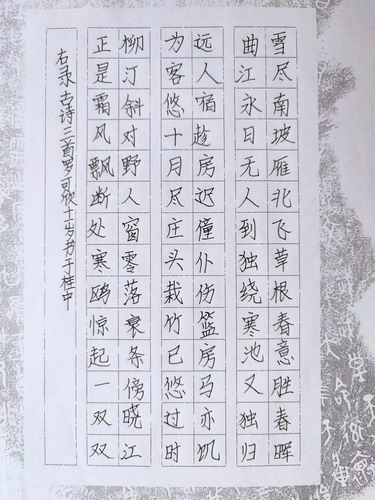 雪尽南坡雁北飞草根春意胜春晖
曲江永日无人到独绕寒池又独归
远人宿趁房迟僮仆伤篮房马亦饥
为客悠十月尽庄头栽竹已悠过时
柳汀斜对野人窗零落衰条傍晓江
正是霜风飘断处寒鸥惊起一双双
右录古诗三首罗可欣十一岁书于桂中